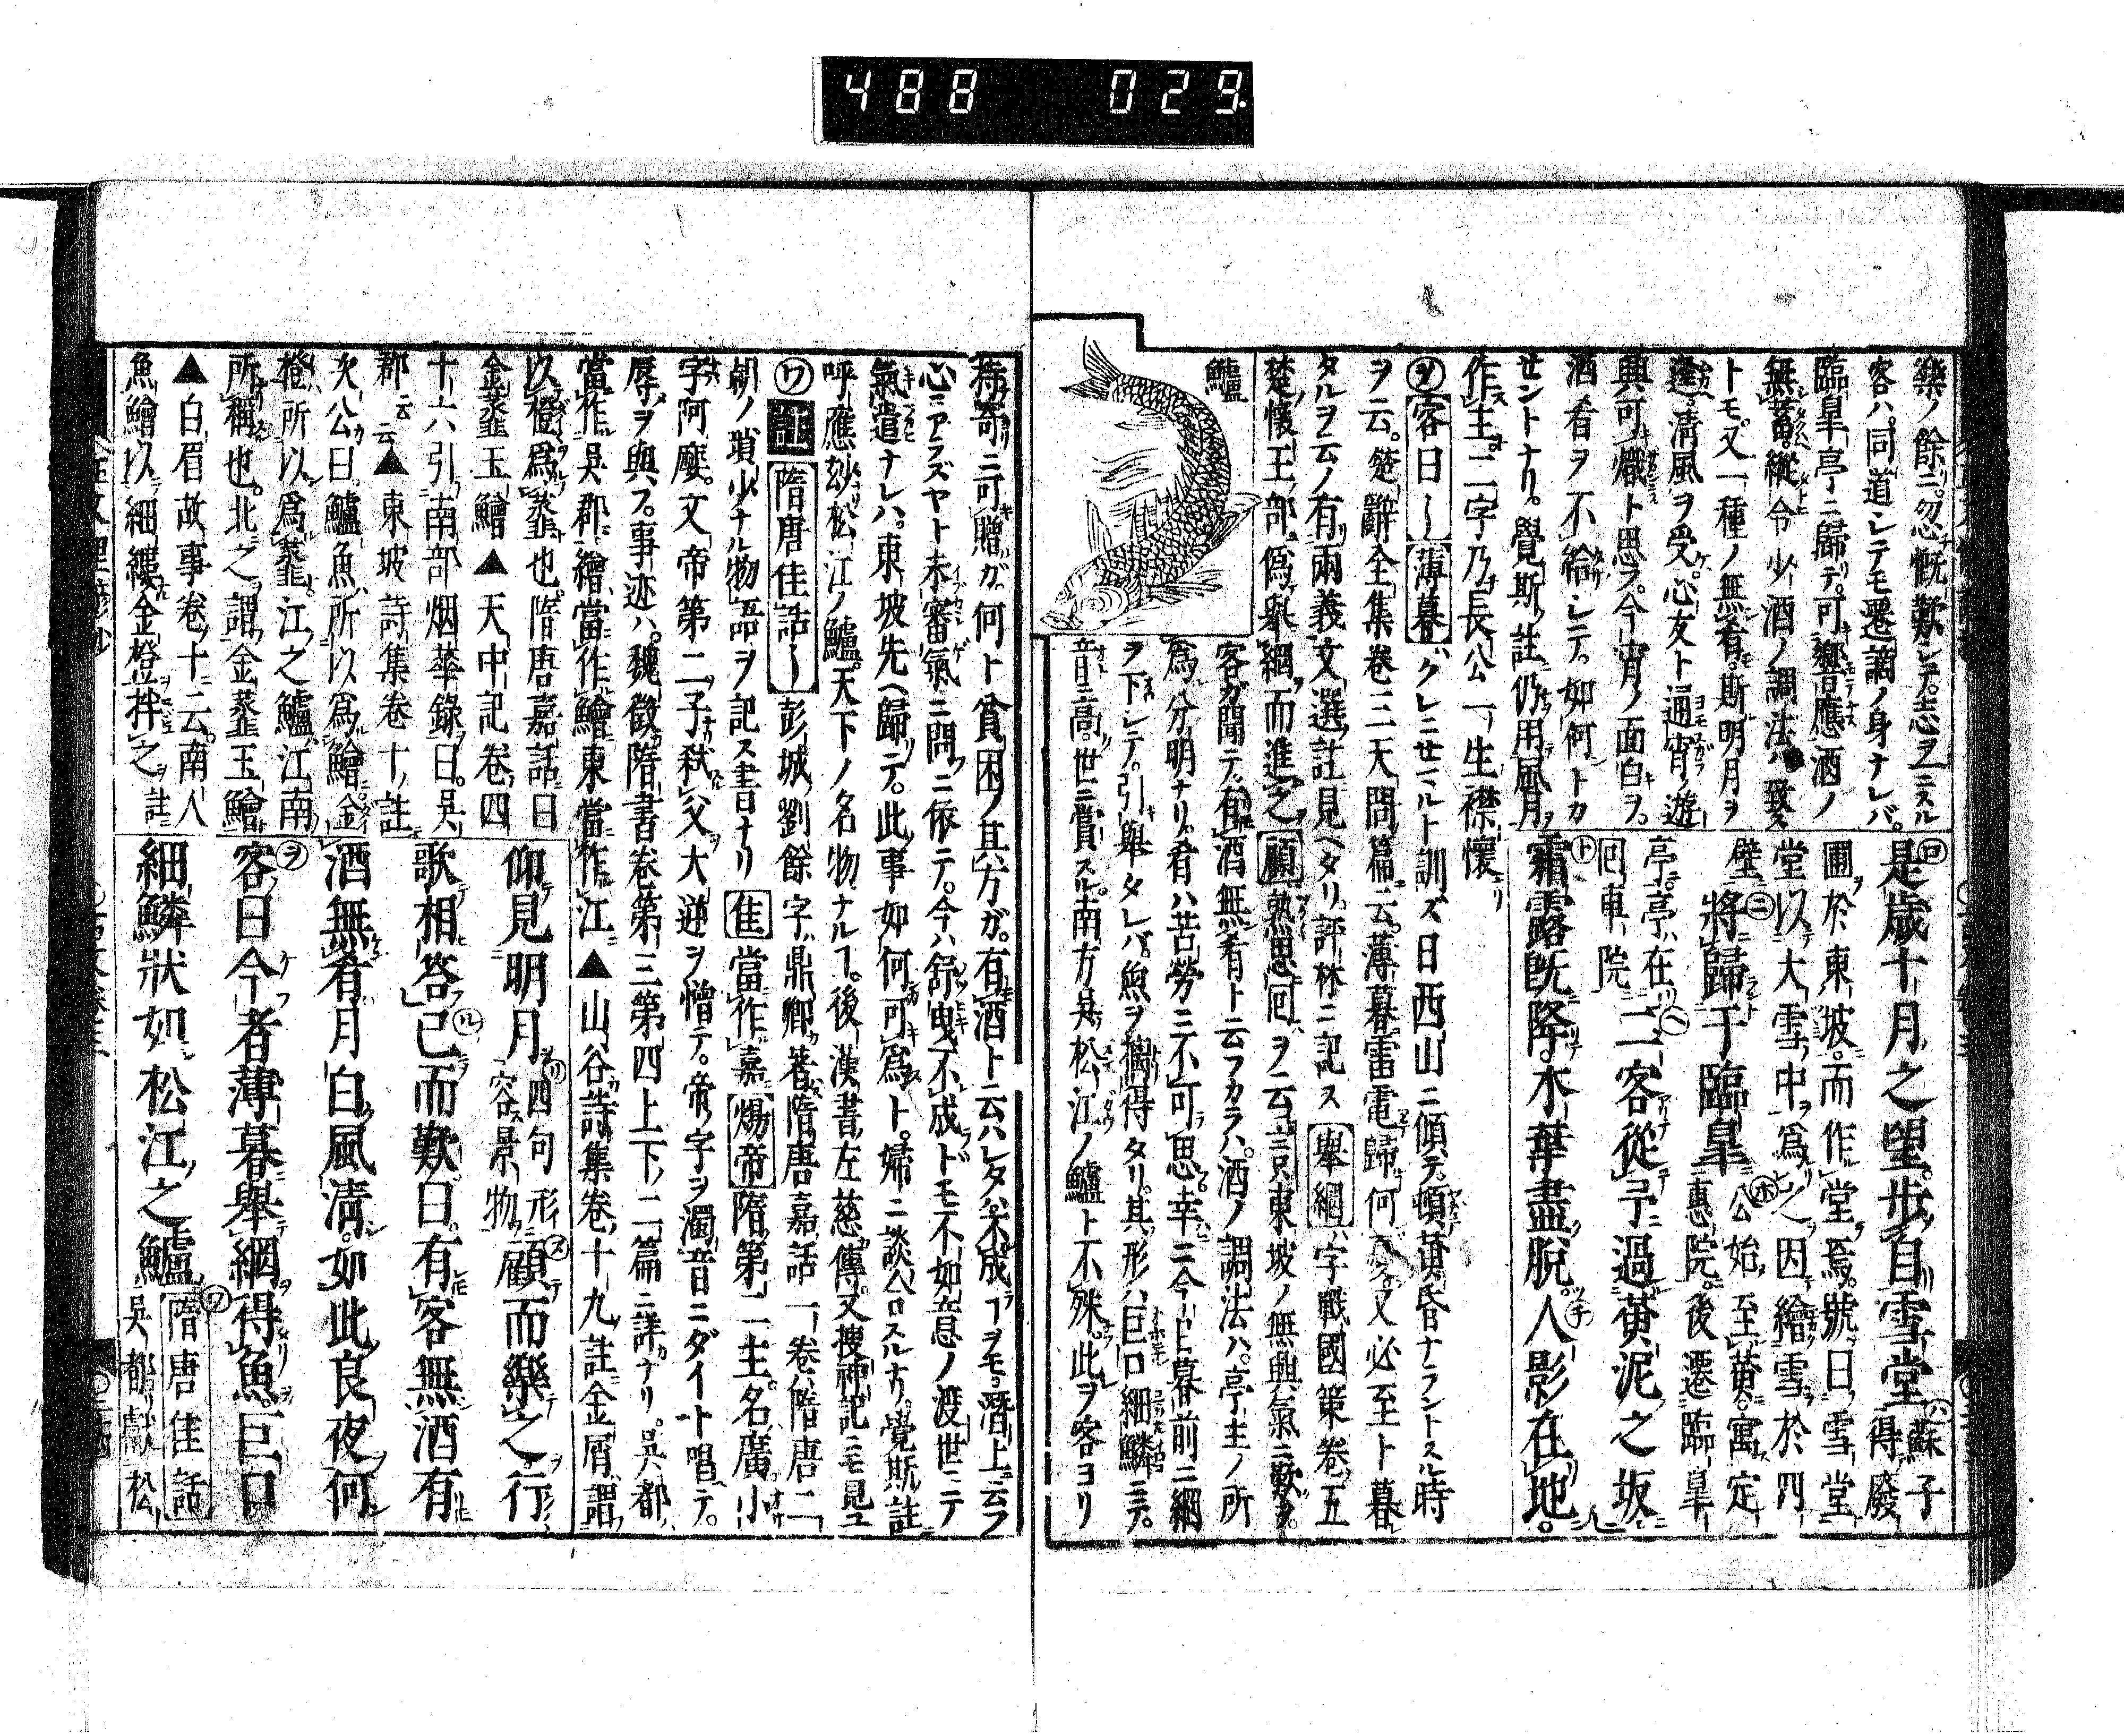 488 029
樂ノ餘ニ忽慨歎シテ志ヲ一ニスル
客ハ同道シテモ遷謫ノ身ナレバ
臨皐亭ニ歸テ可響應酒ノ
無蓄縱令少酒ノ調法ハ致ス
トモ又一種ノ無肴斯明月ヲ
逢清風ヲ受心友ト通宵ノ遊
興可熾ト思ラ今宵ノ面白ヲ
酒肴ヲ不給シテ如何トカ
セントナリ覺斯註仍用風月
作主二字乃長公一生襟懷
是歲十月之望步自雪堂 蘇子得廢
圃於東坡而作堂焉號曰雪堂
堂以大雪中爲之因繪雪於四
壁 將歸于臨皐 公始至黄寓定惠院後遷臨皐
亭亭在回車院 二客從予過黃泥之坂
霜露既降木葉盡脫人影在地
ヲ 客曰〱 薄暮 クレニセマルト訓ズ日西山ニ傾テ頓黃昏ナラントスル時
ヲ云楚辭全集卷三天問篇云薄暮雷電歸何憂又必至ト暮
タルヲ云ノ有兩義文選註見ヘタリ評林ニ記ス 舉網 字戰國策卷五
楚懷王部爲舉網而進之 顧 熟思回ヲ云言東坡ノ無興氣ニ歎ヲ
鱸
客ガ聞テ有酒無肴ト云フカラハ酒ノ調法ハ亭主ノ所
爲分明ナリ肴ハ苦勞ニ不可思幸ニ今日上暮前ニ網
ヲ下シテ引舉タレバ魚ヲ擒得タリ其形ハ巨口細鱗ニテ
音ニ高世ニ賞スル南方吳松江ノ鱸ト不殊此ヲ客ヨリ
持寄ニ可贈ガ何ト貧困ノ其方ガ有酒ト云ハレタハ不成ヿヲモ潛上ニ云フ
心ニアラズヤト未審氣ニ問ニ依テ今ハ舒曳不成ドモ不如意ノ渡世ニテ
氣遣ナレハ東坡先ヘ歸ニテ此事如何可爲ト婦ニ談合ロスルナリ覺斯註
呼應玅松江ノ鱸天下ノ名物ナルヿ後漢書左慈傳又搜神記ニモ見ユ
ワ 註 隋唐佳話〱 彭城劉餘字鼎卿著隋唐嘉話一卷隋唐二
朝ノ瑣少ナル物語ヲ記ス書ナリ 佳 當作嘉 煬帝 隋第二主名廣小
字阿𡡉文帝第二子弒父大逆ヲ憎テ帝字ヲ濁音ニダイト唱テ
辱ヲ與フ事迹ハ魏徵隋書卷第三第四上下二篇ニ詳ナリ 吳都
當作吳郡 繪當作鱠 東當作江 ▲山谷詩集卷十九註金屑謂
以橙爲虀也隋唐嘉話曰
金虀玉鱠 ▲天中記卷四
十六引南部烟華錄曰吳
郡云云 ▲東坡詩集卷十註
次公曰鱸魚所以爲鱠金
橙所以爲虀江之鱸江南
所稱也北之謂金虀玉鱠
▲白眉故事卷十二云南人
魚鱠以細縷金橙拌之 註
仰見明月 四句形容景物 顧而樂之行
歌相答已而歎曰有客無酒有
酒無肴月白風清如此良夜何
客曰今者薄暮舉網得魚巨口
細鱗狀如松江之鱸 隋唐佳話 吳都獻松